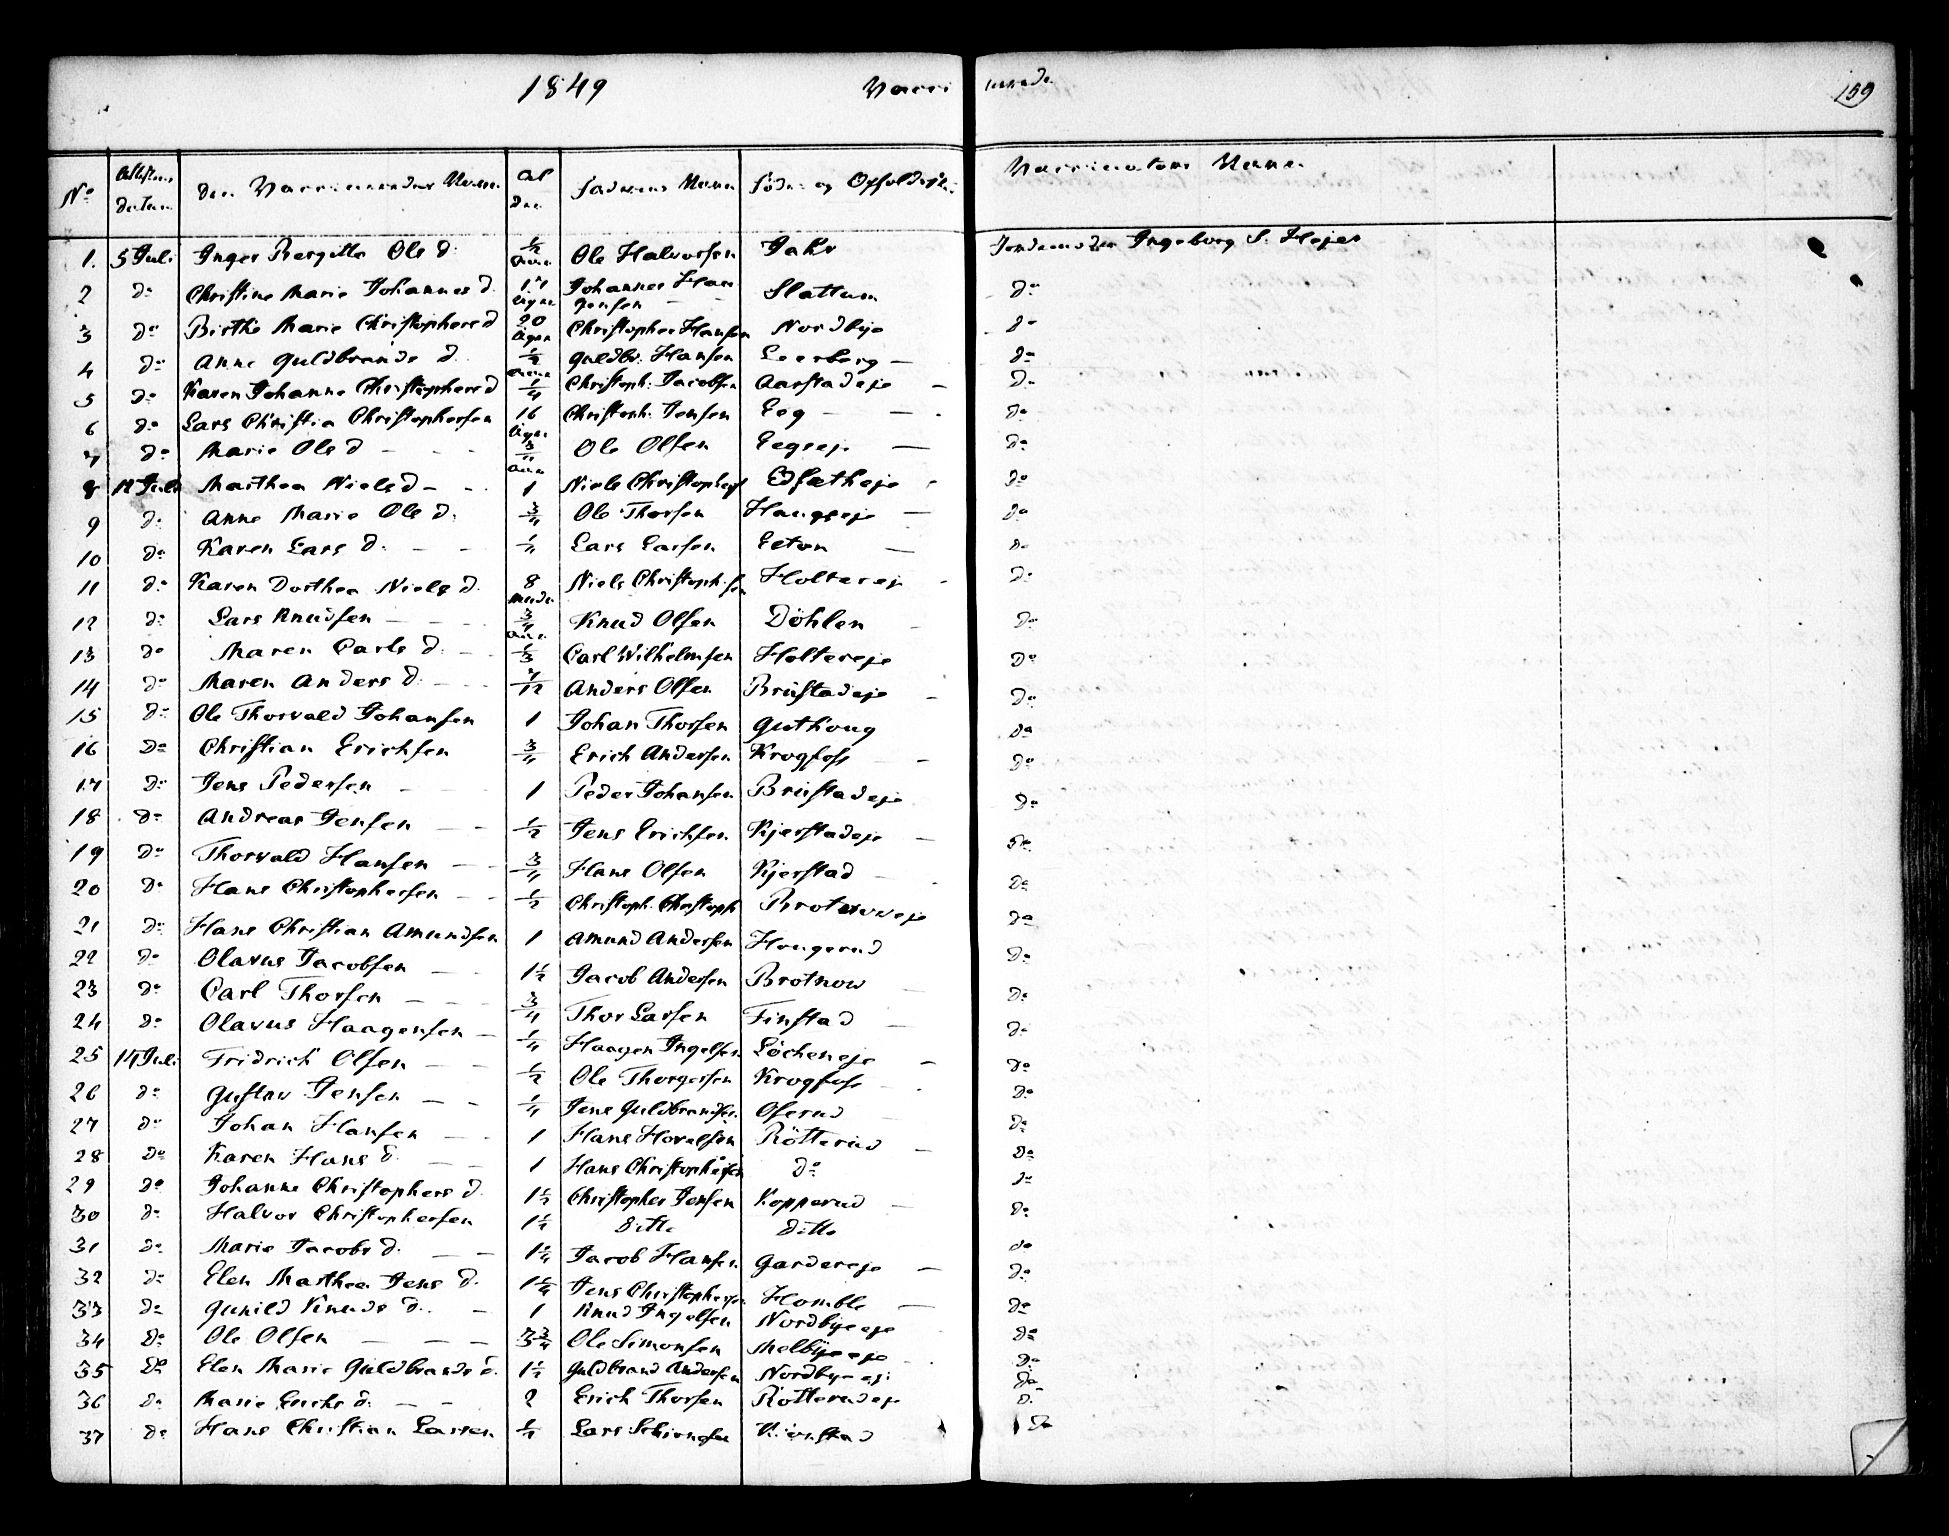 1849 Vacci nerede 159
No Attestens Datum Den Vaccineredes Navn Al der Faderens Navn Føde og Opholdst: Vaccinators Navn
1. 5 Juli Inger Bergitta Ols d: ½ Aar Ole Halvorsen Fakr Jordemoder Ingeborg S. Hejer
2 do Christine Marie Johannes d. 14 Uger Johannes Han gensen Slattum do
3 do Birthe Marie Christophers d 20 Uger Christopher Hansen Nordbye do
4 do Anne Guldbrands d. ½ Aar Guldbr: Hansen Leerberg do
5 do Karen Johanne Christophers d ¼ Christoph: Jacobsen Aarstadeje do
6 do Lars Christia Christophersen 16 Uger Christoph: Jensen Eeg do
7 do Marie Ols d ¾ Aar Ole Olsen Eegeeje do
8 12 Juli Marthea Niels d 1 Niels Christophers do
9 do Anne Marie Ols d. ¾ Ole Thorsen Haugseje do
10 do Karen Lars d. ¼ Lars Larsen Eeton do
11 do Karen Dorthea Niels d. 8 Mdr Niels Christoph:sen Holtereje do
12 do Lars Knudsen ¾ Aar Knud Olsen Döhlen do
13 do Maren Carls d. ⅓ Carl Wilhelmsen Holtereje do
14 do Maren Anders d. 7/12 Anders Olsen Brustadeje do
15 do Ole Thorvald Johansen 1 Johan Thorsen Guthoug do
16 do Christian Erichsen ¾ Erich Andersen Krogfoss do
17 do Jens Pedersen 1 Peder Johansen Brustadeje do
18 do Andreas Jensen ½ Jens Erichsen Kjerstadeje do
19 do Thorvald Hansen ¾ Hans Olsen Kjerstad do
20 do Hans Christophersen ½ Christoph. Christoph Brotnoweje do
21 do Hans Christian Amundsen 1 Amund Andersen Hougerud do
22 do Olavus Jacobsen 1½ Jacob Andersen Brotnow do
23 do Carl Thorsen ¾ Thor Larsen Finstad do
24 do Olavus Haagensen ¼ Haagen Ingelsen Löcheneje do
25 14 Juli Fridrich Olsen ½ Ole Thorgersen Krogfoss do
26 do Gustav Jensen ¼ Jens Guldbrandsen Oserud do
27 do Johan Hansen 1 Hans Hovelsen Rötterud do
28 do Karen Hans d. 1 Hans Christophersen do do
29 do Johanne Christophers d. 1½ Christopher Jensen Kopperud do
30 do Halvor Christophersen 1½ ditto ditto do
31 do Marie Jacobs d. 1¼ Jacob Hansen Gardereje do
32 do Elen Marthea Jens d. 1¼ Jens Christophersen Homble do
33 do Gunild Knuds d. 1 Knud Ingelsen Nordbyeeje do
34 do Ole Olsen 3¾ Ole Simonsen Melbyeeje do
35 do Elen Marie Guldbrands d. 1½ Guldbrand Andersen Nordbye ej: do
36 do Marie Erichs d. 2 Erich Thorsen Rotterudeje do
37 do Hans Christian Larsen ½ Lars do